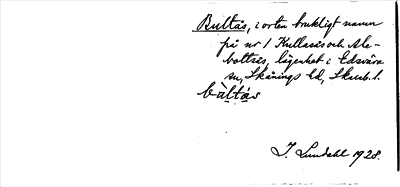 Bultås, i orten brukligt namn
på nr 1 Kullasås och Ale-
bottres, lägenhet i Edsvära
sn, Skånings hd, Skarab. l.
bàltås
I. Lundahl 1928.